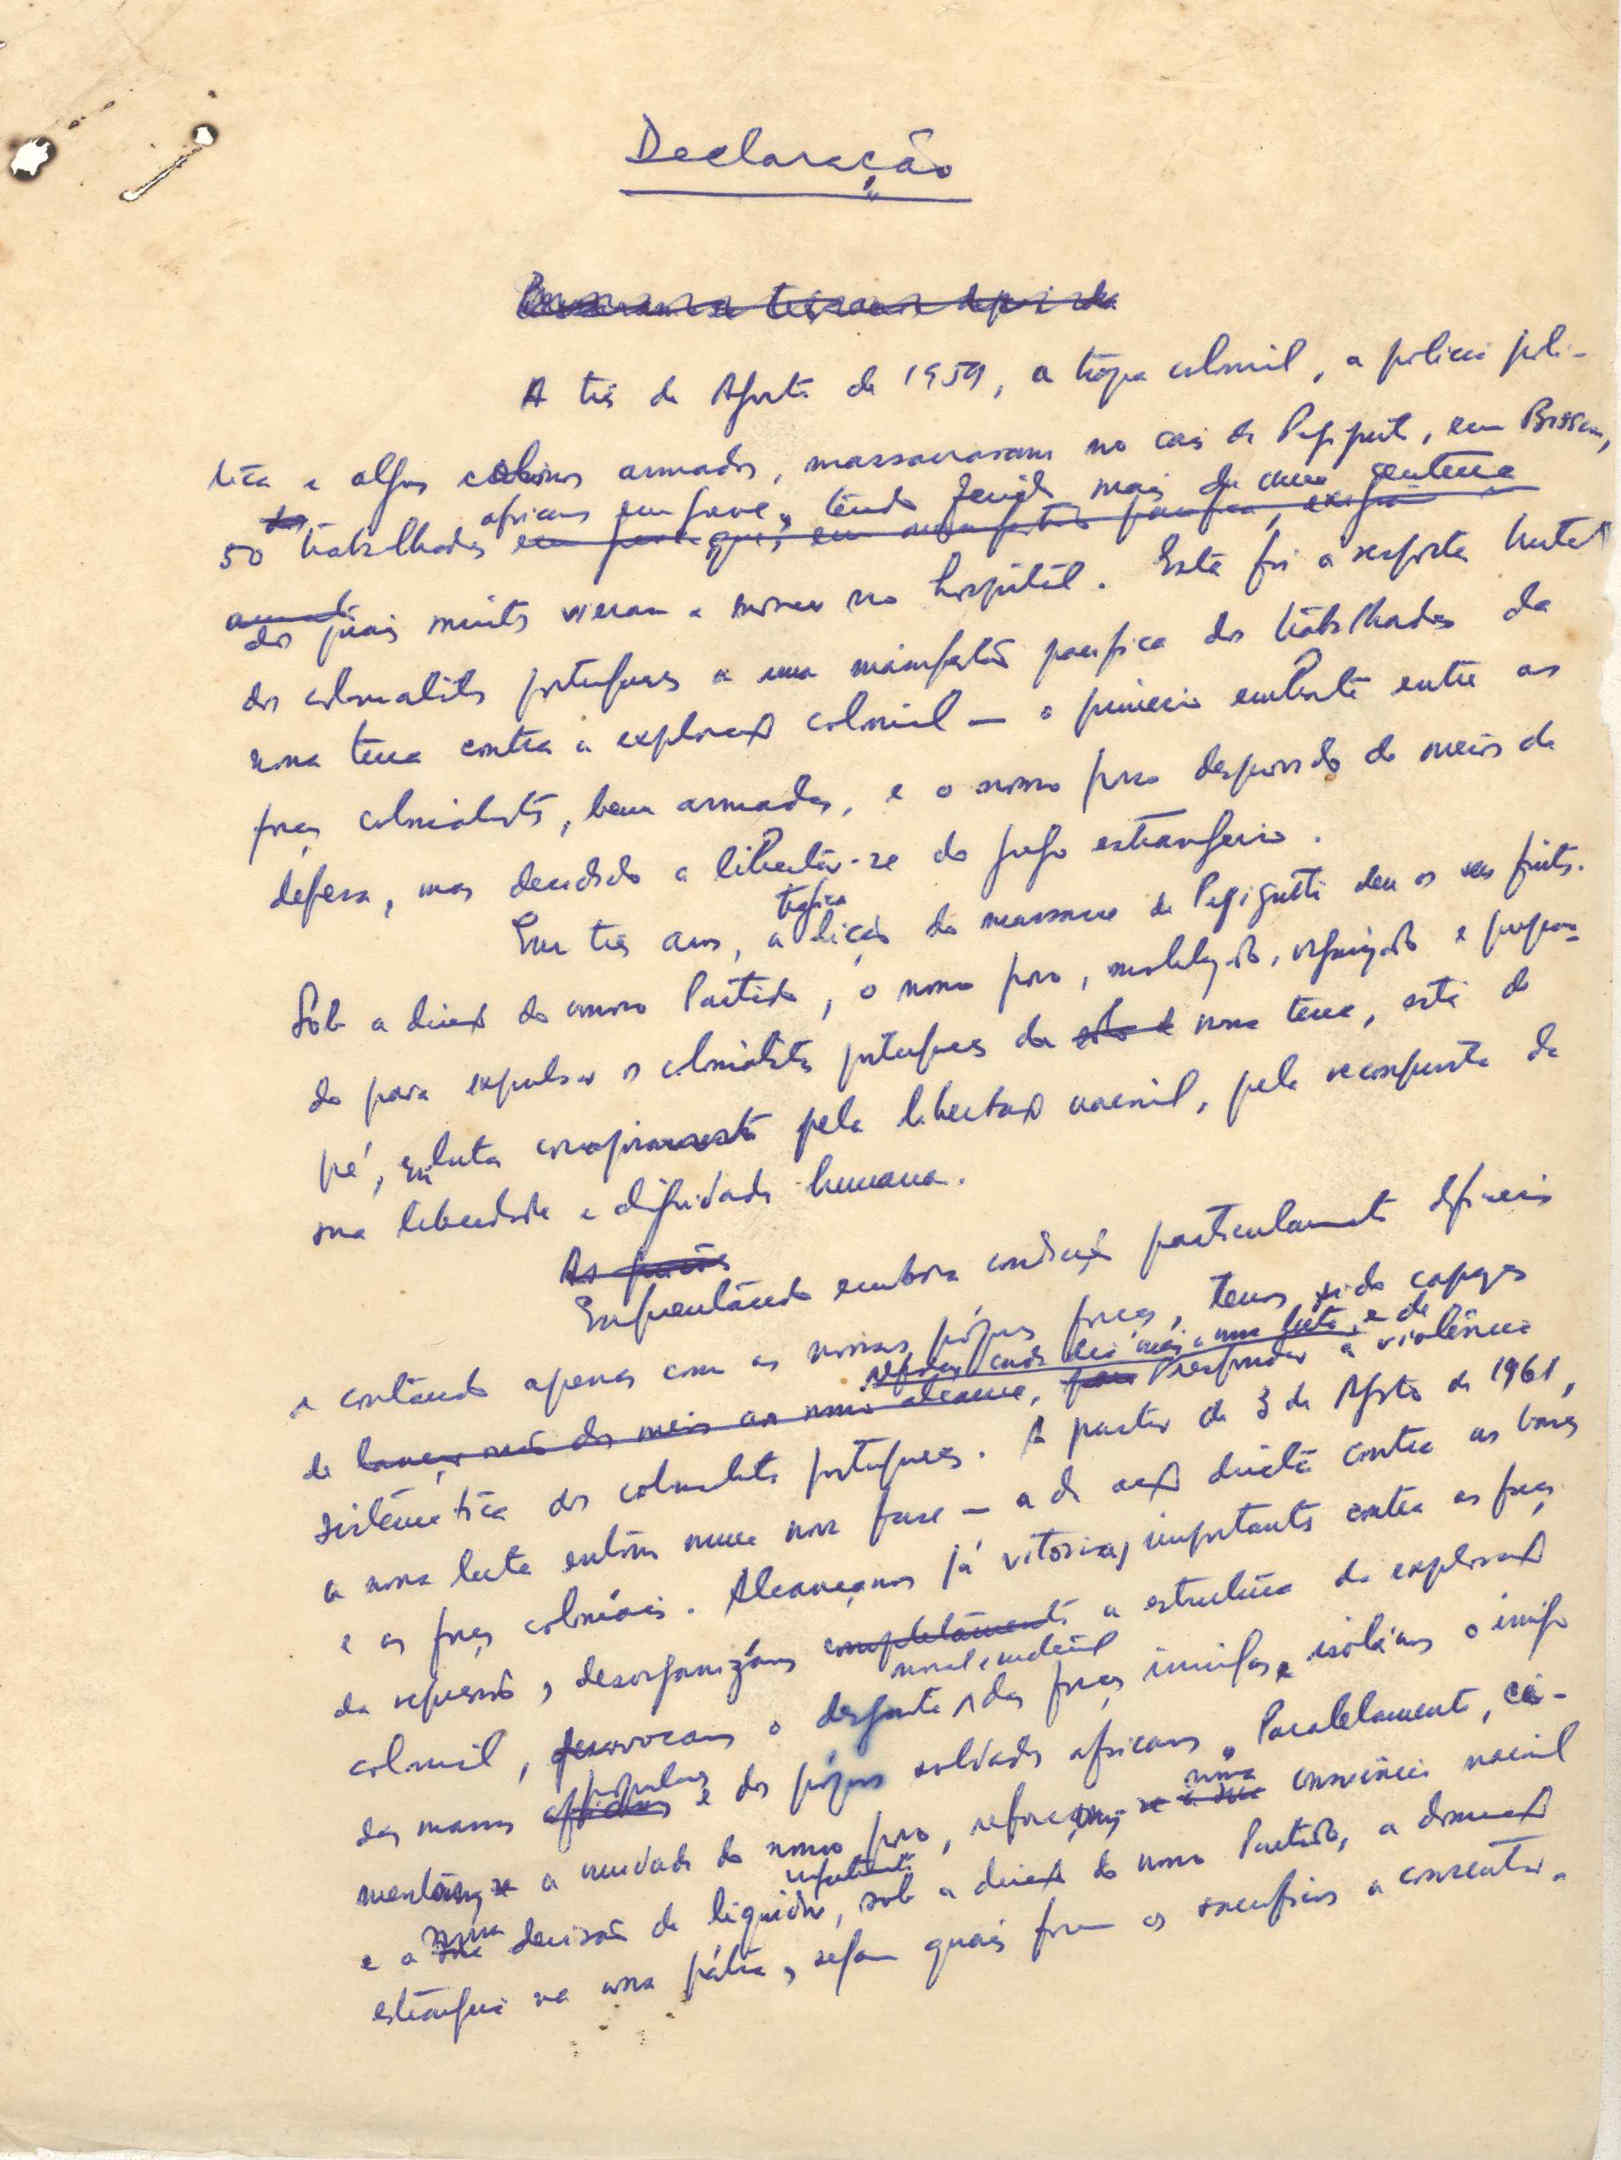 Declaração
A três de Agosto de 1959, a tropa colonial, a polícia polí-
tica e alguns colonos armados, massacraram no cais de Pigiguiti, em Bissau,
50 trabalhadores africanos em greve, tendo ferido mais de uma centena
dos quais muitos vieram a morrer no hospital. Esta foi a resposta brutal
dos colonialistas portugueses a uma manifestação pacífica dos trabalhadores da
nossa terra contra a exploração colonial — o primeiro embate entre as
forças colonialistas, bem armadas, e o nosso povo desprovido de meios de
defesa, mas decidido a libertar-se do jugo estrangeiro.
Em três anos, a trágica lição do massacre de Pigiguiti deu os seus frutos.
Sob a direcção do nosso Partido, o nosso povo, mobilizado, organizado e prepara-
do para expulsar os colonialistas portugueses da nossa terra, está de
pé, em luta pela libertação nacional, pela reconquista da
sua liberdade e dignidade humana.
Enfrentando embora condições particularmente difíceis
e contando apenas com as nossas próprias forças, temos sido capazes
de reforçar cada dia mais a nossa luta, e de responder à violência
sistemática dos colonialistas portugueses. A partir de 3 de Agosto de 1961,
a nossa luta entrou numa nova fase — a da acção directa contra as bases
e as forças coloniais. Alcançamos já vitórias importantes contra as forças
da repressão, desorganizámos a estrutura da exploração
colonial, provocamos o desgaste moral e material das forças inimigas, e isolámos o inimigo
das massas populares e dos próprios soldados africanos. Paralelamente, ci-
mentámos a unidade do nosso povo, reforçámos a nossa consciência nacional
e a nossa decisão de liquidar, sob a direcção do nosso Partido, a dominação
estrangeira na nossa pátria, sejam quais forem os sacrifícios a consentir.